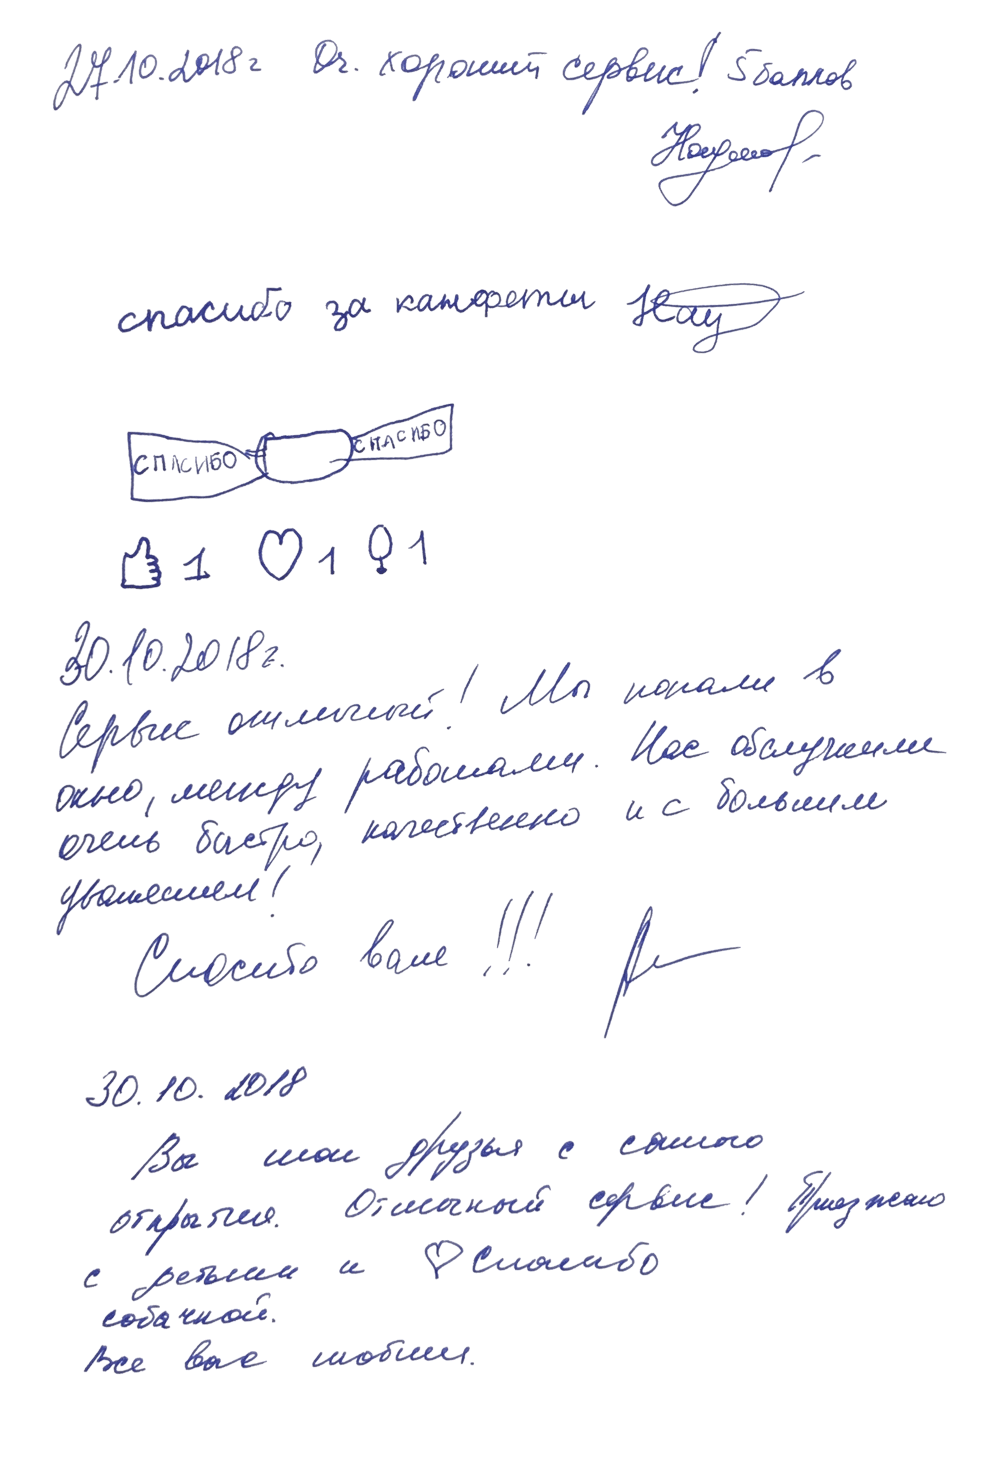 27.10.2018г Оч. хороший сервис! 5 баллов
спасибо за канфеты
СПАСИБО СПАСИБО
1 1 1
30.10.2018г.
Сервис отличный! Мы попали в
окно, между работами. Нас обслужили
очень быстро, качественно и с большим
уважением!
Спасибо вам!!!
30.10.2018
Вы мои друзья с самого
открытия. Отличный сервис! Приезжаю
с детьми и ♡ Спасибо
собачкой.
Все вас любим.